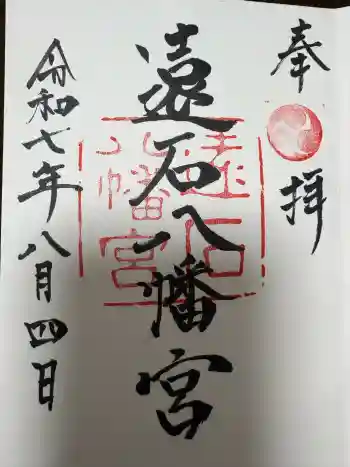 奉拝
遠石八幡宮
遠石八幡宮
令和七年八月四日